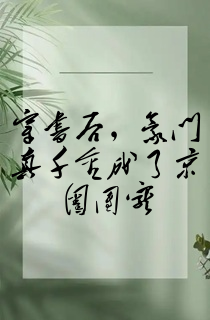 穿书后，豪门
真千金成了京
圈团宠